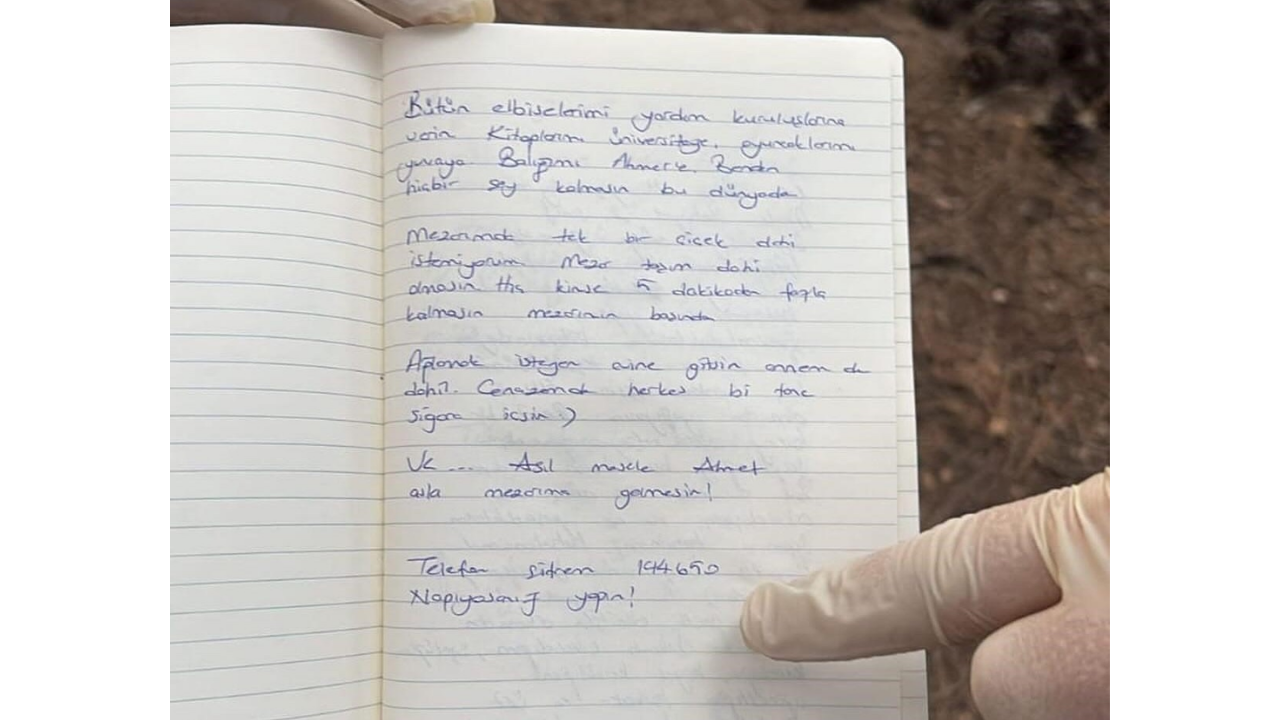 Bütün elbiselerimi yardım kuruluşlarına
verin Kitaplarım üniversiteye, oyuncaklarımı
yuvaya Balığımı Ahmet'e. Benden
hiçbir şey kalmasın bu dünyada
Mezarımda tek bir çiçek dahi
istemiyorum Mezar taşım dahi
olmasın Hiç kimse 5 dakikadan fazla
kalmasın mezarımın başında
Ağlamak isteyen evine gitsin annem de
dahil. Cenazemde herkes bi tane
sigara içsin :)
Ve ... Asıl mesele Ahmet
asla mezarıma gelmesin!
Telefon şifrem 194650
Napıyosanız yapın!